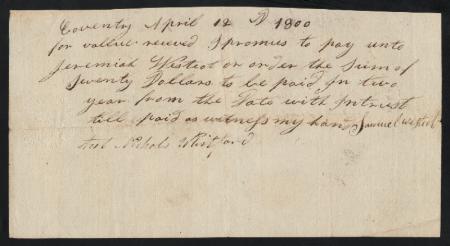 Coventry April 12 D 1800
for vallue recived I promies to pay unto
Jeremiah Westcot or order the Sum of
Seventy Dollars to be paid In two
year from the Date with Intrust
till paid as witness my hand Samuel Westcot
test Nichols Whitford